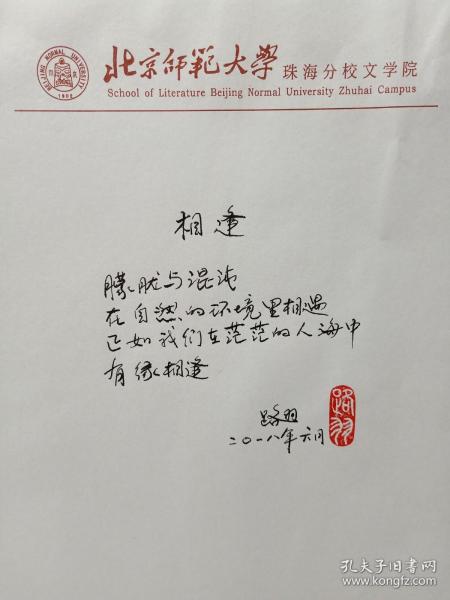 北京师范大学 珠海分校文学院
School of Literature Beijing Normal University Zhuhai Campus
BEIJING NORMAL UNIVERSITY
1902
相逢
朦胧与混沌
在自然的环境里相遇
正如我们在茫茫的人海中
有缘相逢
路羽
二〇一八年六月
路羽
孔夫子旧书网
www.kongfz.com